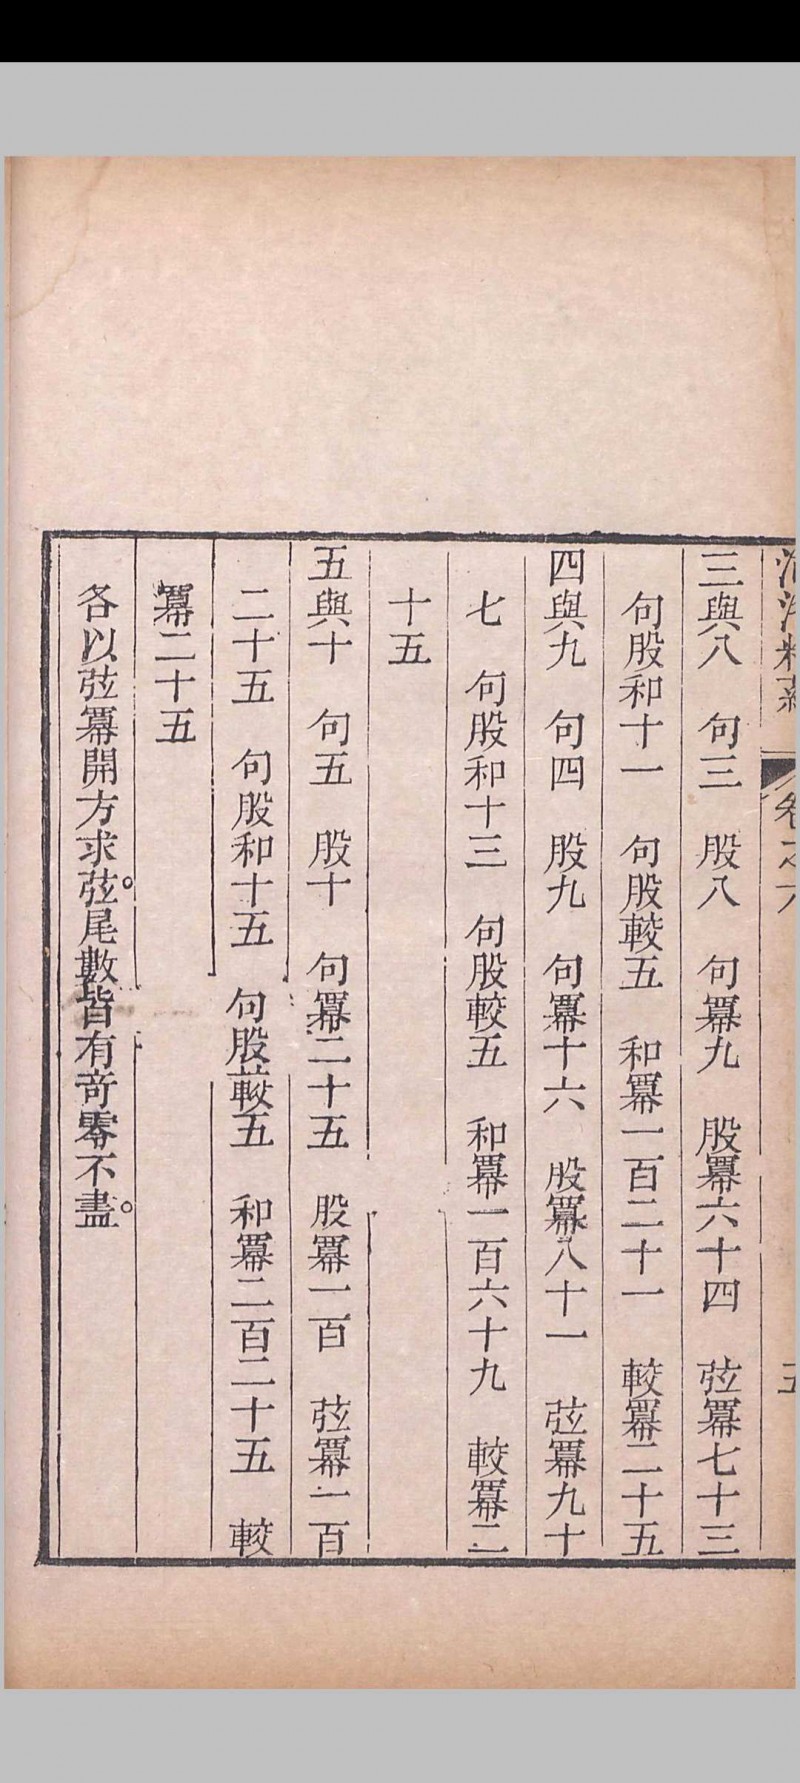 卷之六
三與八　句三　股八　句冪九　股冪六十四　弦冪七十三
句股和十一　句股較五　和冪一百二十一　較冪二十五
四與九　句四　股九　句冪十六　股冪八十一　弦冪九十
七　句股和十三　句股較五　和冪一百六十九　較冪二
十五
五與十　句五　股十　句冪二十五　股冪一百　弦冪一百
二十五　句股和十五　句股較五　和冪二百二十五　較
冪二十五
各以弦冪開方求弦。尾數皆有奇零不盡。